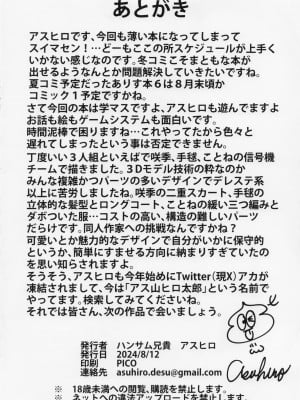 あとがき
アスヒロです、今回も薄い本になってしまって
スイマセン!…どーもここの所スケジュールが上手く
いかない感じなのです。冬コミこそまともな本が
出せるようなんとか問題解決していきたいですね。
夏コミ予定だったありす本6は8月末頃か
コミック1予定ですかね。
さて今回の本は学マスですよ、アスヒロも遊んでますよ
お話も絵もゲームシステムも面白いです。
時間泥棒で困りますね…これやってたから色々と
遅れてしまったという事は否定できません。
丁度いい3人組といえば咲季、手毬、ことねの信号機
チームで描きました。3Dモデル技術の粋なのか
みんな複雑かつパーツの多いデザインでデレステ系
以上に苦労しましたね。咲季の二重スカート、手毬の
立体的な髪型とロングコート、ことねの緩い三つ編みと
ダボついた服…コストの高い、構造の難しいパーツ
だらけです。同人作家への挑戦なんですかね?
可愛いとか魅力的なデザインで自分がいかに保守的
というか、簡単にすませる方向に納まりすぎていたのか
を思い知らされますよ。
そうそう、アスヒロも今年始めにTwitter(現X)アカが
凍結されまして、今は「アス山ヒロ太郎」という名前で
やってます。検索してみてくださいね。
それでは皆さん、次の作品で会いましょう。
発行者 ハンサム兄貴 アスヒロ
発行日 2024/8/12
印刷 PICO
連絡先 asuhiro.desu@gmail.com
Asuhiro
※ 18歳未満への閲覧、購読を禁止します。
※ ネットへの違法アップロードを禁止します。